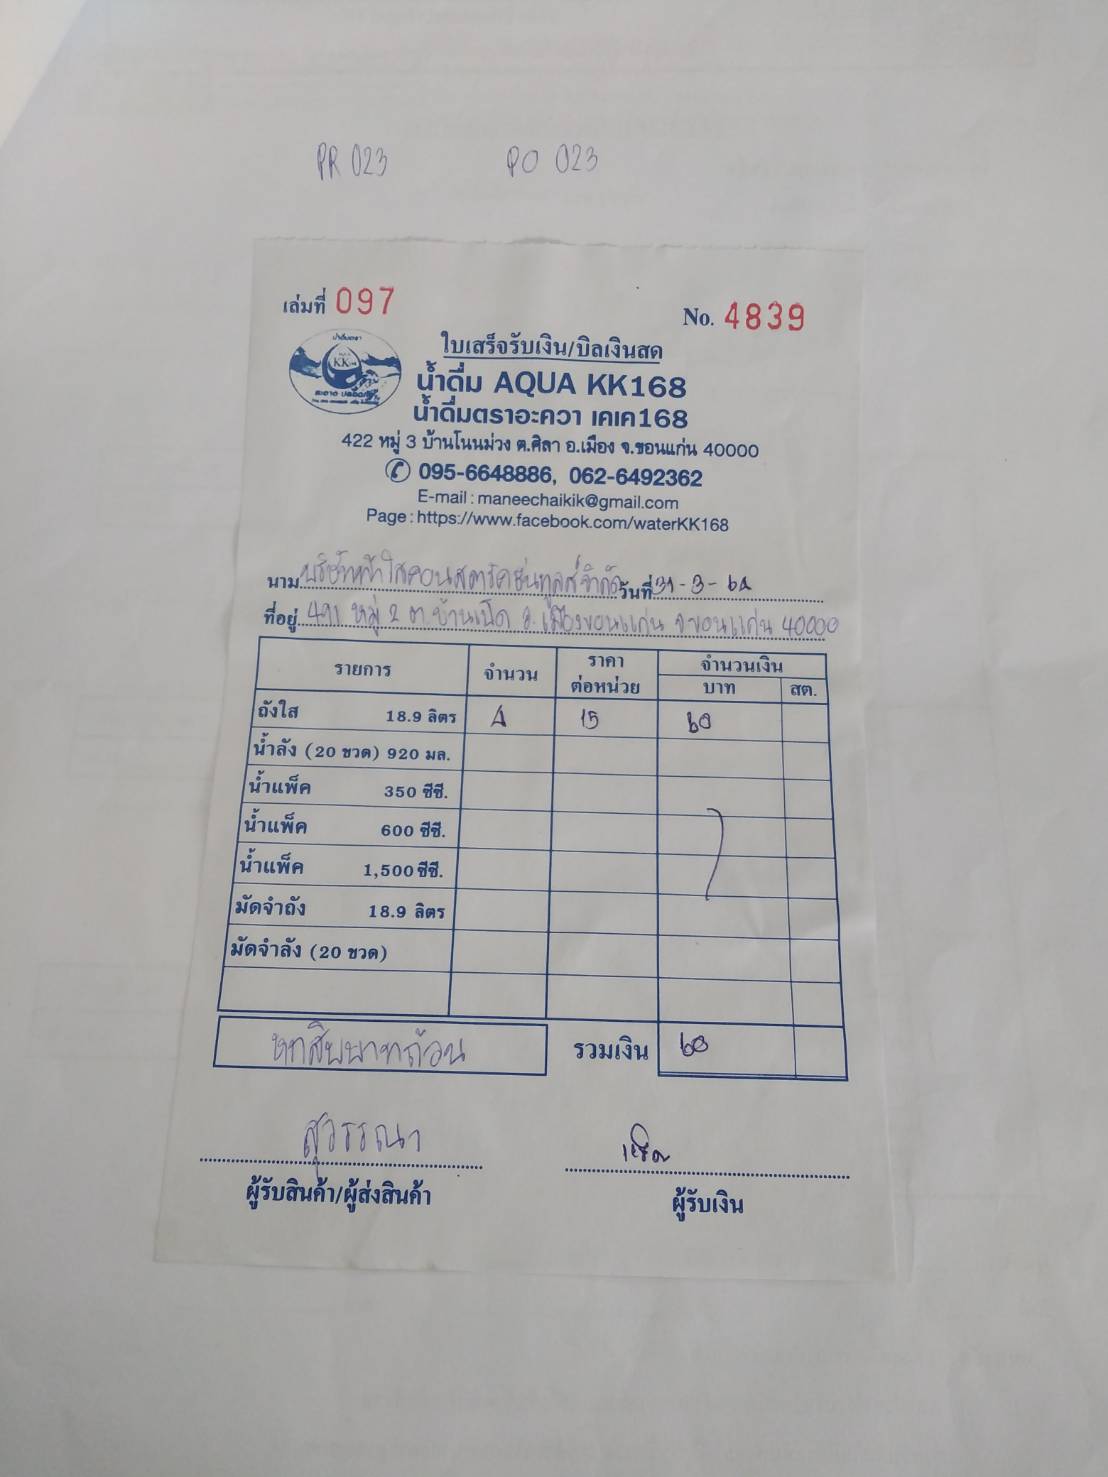 PR 023 PO 023
เล่มที่ 097 No. 4839
น้ำดื่มตรา
KK168
สะอาด ปลอดภัย
ใบเสร็จรับเงิน/บิลเงินสด
น้ำดื่ม AQUA KK168
น้ำดื่มตราอะควา เคเค168
422 หมู่ 3 บ้านโนนม่วง ต.ศิลา อ.เมือง จ.ขอนแก่น 40000
095-6648886, 062-6492362
E-mail : maneechaikik@gmail.com
Page : https://www.facebook.com/waterKK168
นาม บริษัทฟ้าใสคอนสตรัคชั่นทูลส์จำกัด วันที่ 31-3-64
ที่อยู่ 491 หมู่ 2 ต.บ้านเป็ด อ.เมืองขอนแก่น จ.ขอนแก่น 40000
รายการ จำนวน ราคาต่อหน่วย จำนวนเงิน
บาท สต.
ถังใส 18.9 ลิตร 4 15 60
น้ำลัง (20 ขวด) 920 มล.
น้ำแพ็ค 350 ซีซี.
น้ำแพ็ค 600 ซีซี.
น้ำแพ็ค 1,500 ซีซี.
มัดจำถัง 18.9 ลิตร
มัดจำลัง (20 ขวด)
หกสิบบาทถ้วน รวมเงิน 60
สุวรรณา
ผู้รับสินค้า/ผู้ส่งสินค้า ผู้รับเงิน